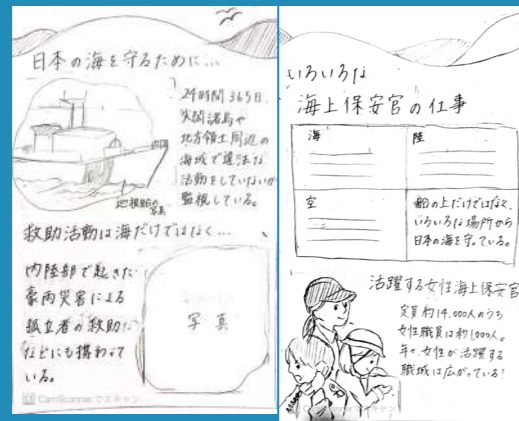 日本の海を守るために…
24時間365日
尖閣諸島や
地方領土周辺の
海域で違法な
活動をしていないか
監視している。
写真
救助活動は海だけではなく…
内陸部で起きた
豪雨災害による
孤立者の救助
などにも携わって
いる。
写真
CamScanner でスキャン
いろいろな
海上保安官の仕事
海
陸
空
船の上だけではなく、
いろいろな場所から
日本の海を守っている。
活躍する女性海上保安官
定員約14,000人のうち
女性職員は約1,000人。
年々女性が活躍する
職域は広がっている!